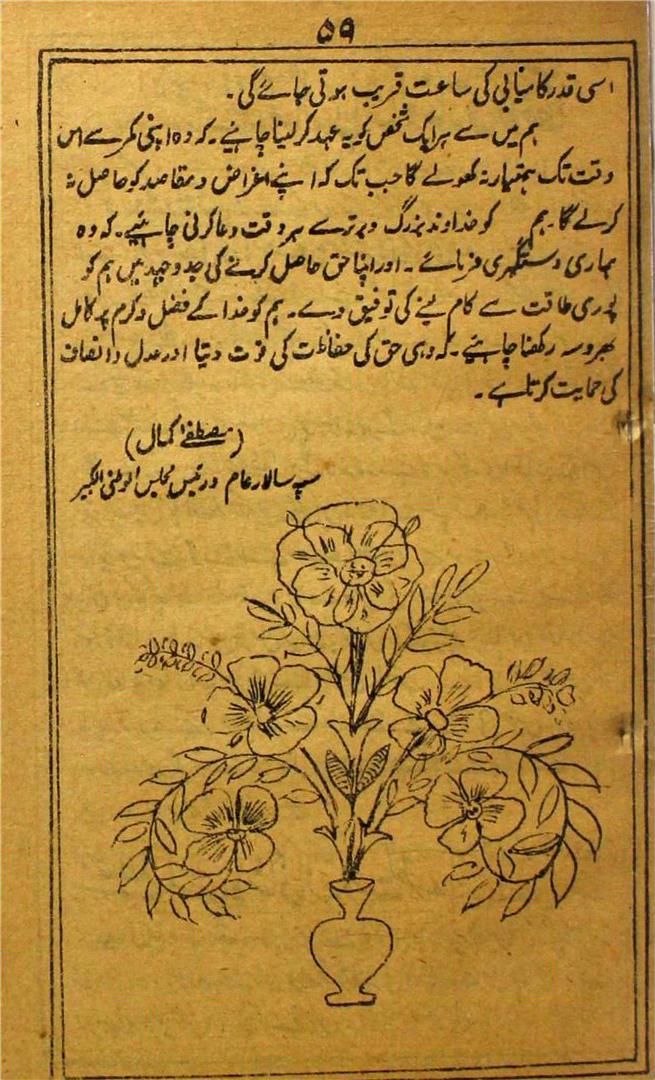 ۵۹
اسی قدر کامیابی کی ساعت قریب ہوتی جائے گی۔
ہم میں سے ہر ایک شخص کو یہ عہد کر لینا چاہئیے۔ کہ وہ اپنی کمر سے اس
وقت تک ہتھیار نہ کھولے گا جب تک کہ اپنے اغراض و مقاصد کو حاصل نہ
کرلے گا۔ ہم کو خداوند بزرگ و برتر سے ہر وقت دعا کرنی چاہئیے۔ کہ وہ
ہماری دستگیری فرمائے۔ اور اپنا حق حاصل کرنے کی جدوجہد میں ہم کو
پوری طاقت سے کام لینے کی توفیق دے۔ ہم کو خدا کے فضل و کرم پر کامل
بھروسہ رکھنا چاہئیے۔ کہ وہی حق کی حفاظت کی قوت دیتا اور عدل و انصاف
کی حمایت کرتا ہے۔
(مصطفےٰ کمال)
سپہ سالار عام و رئیس مجلس الوطنی الکبیر